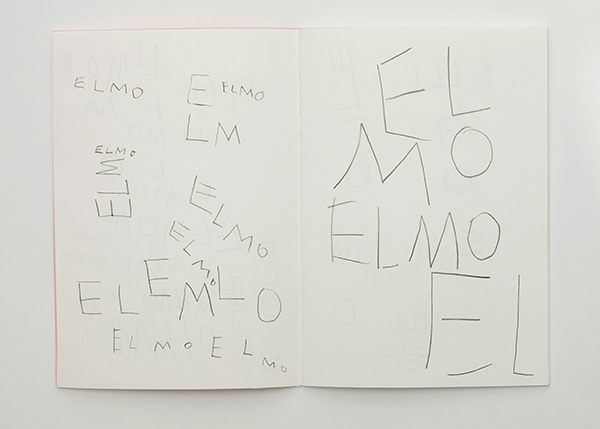 ELMO
E ELMO
LM
ELMO
ELM
ELMO
ELMo
ELEMLO
ELMO ELMO
EL
MO
ELMO
EL